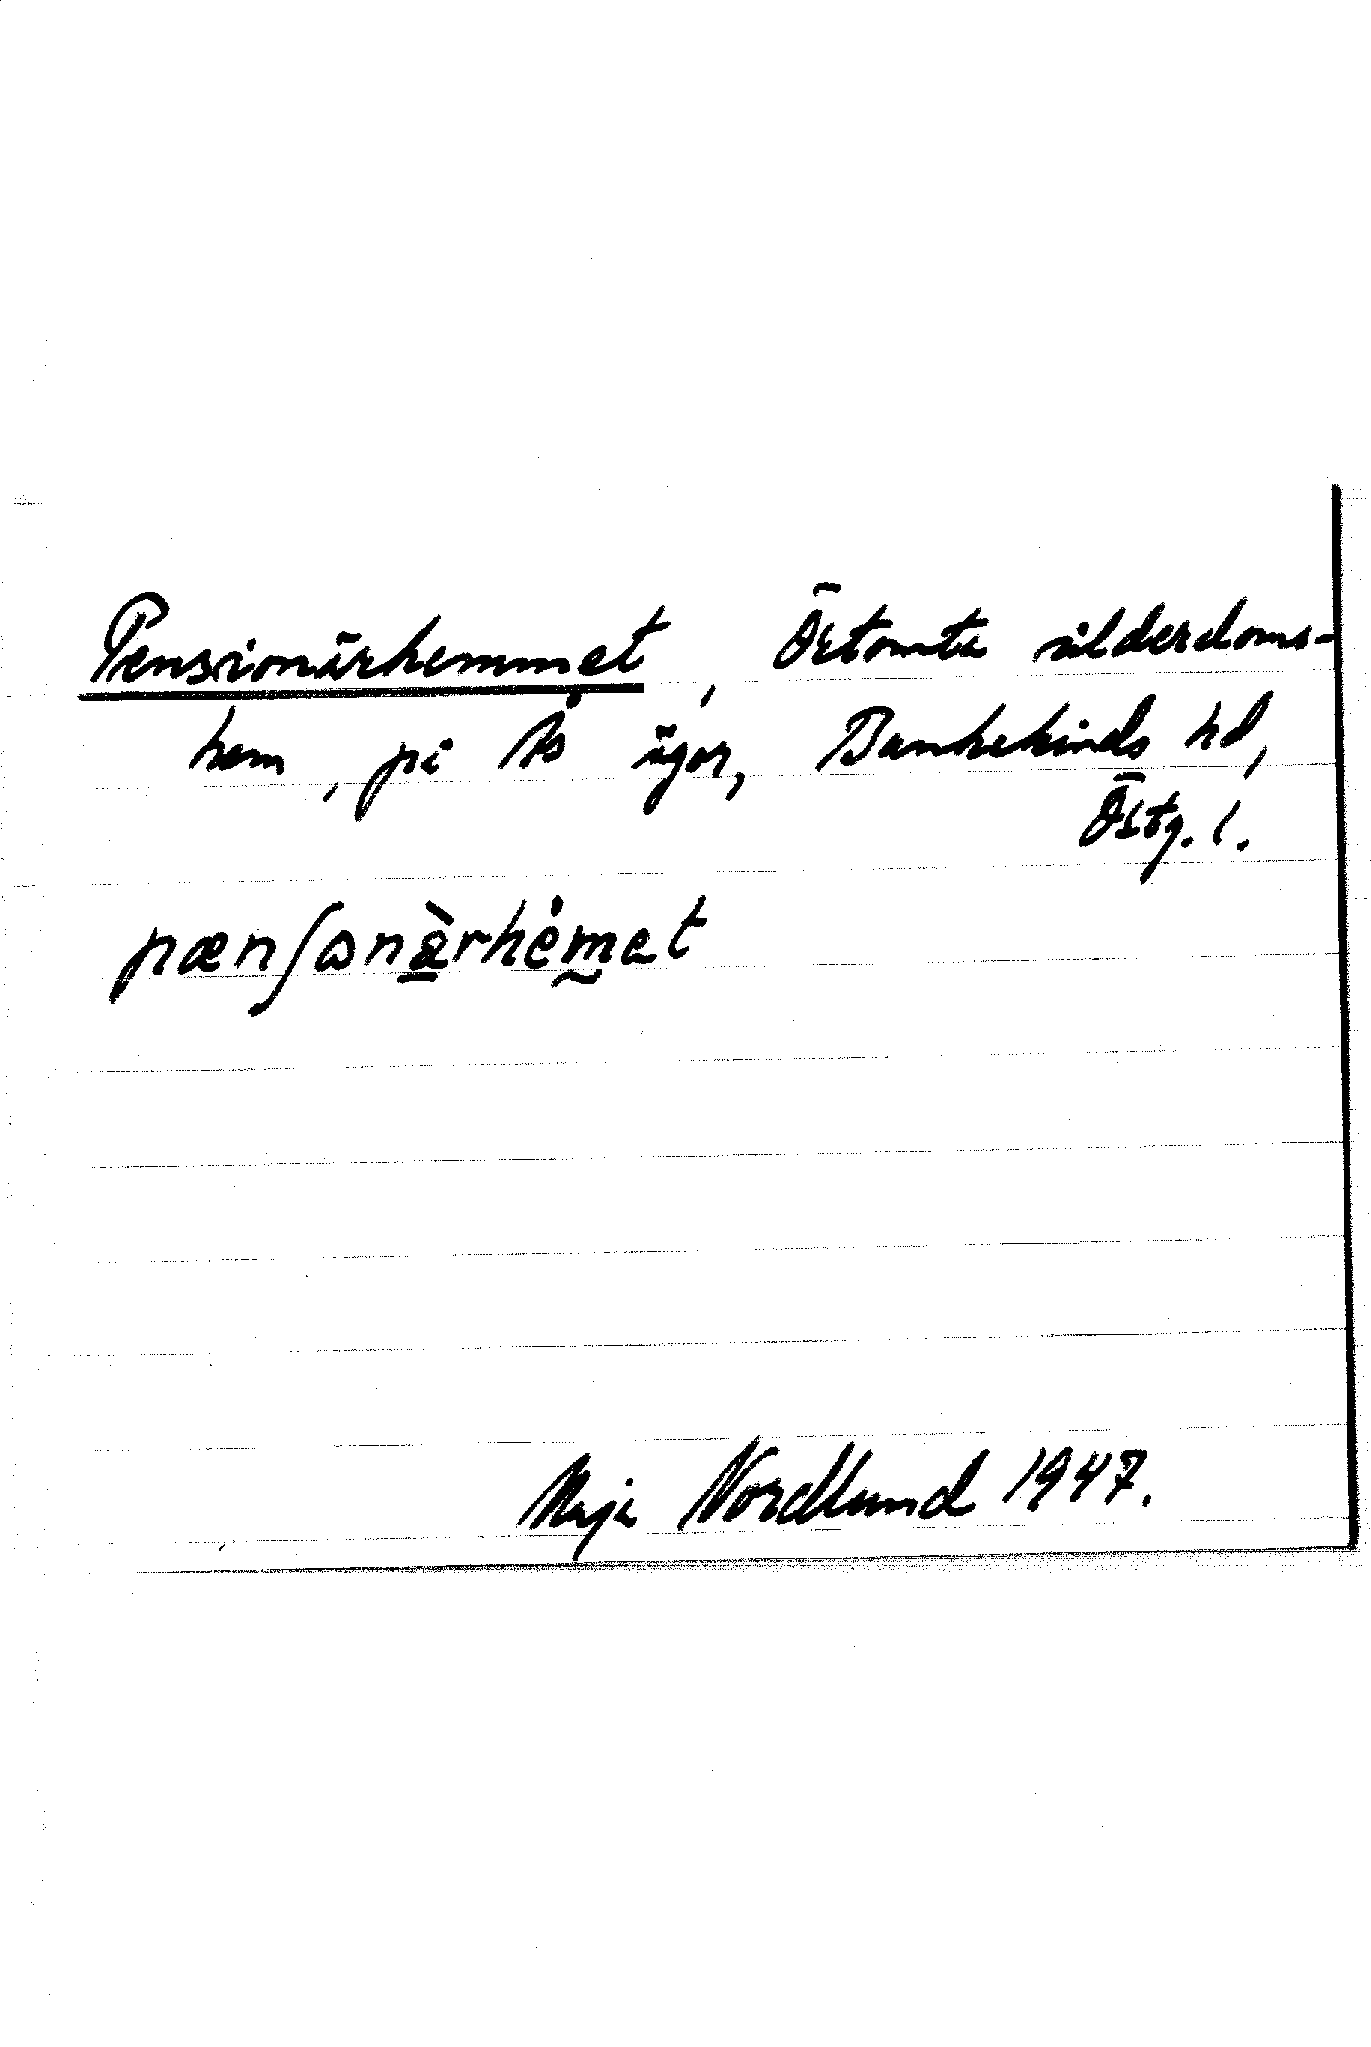 Pensionärhemmet, Örtomta ålderdoms-
hem, på Ås ägor, Bankekinds hd,
Östg. l.
pænʃɷnæ̀rhėmet
Maja Nordlund 1947.